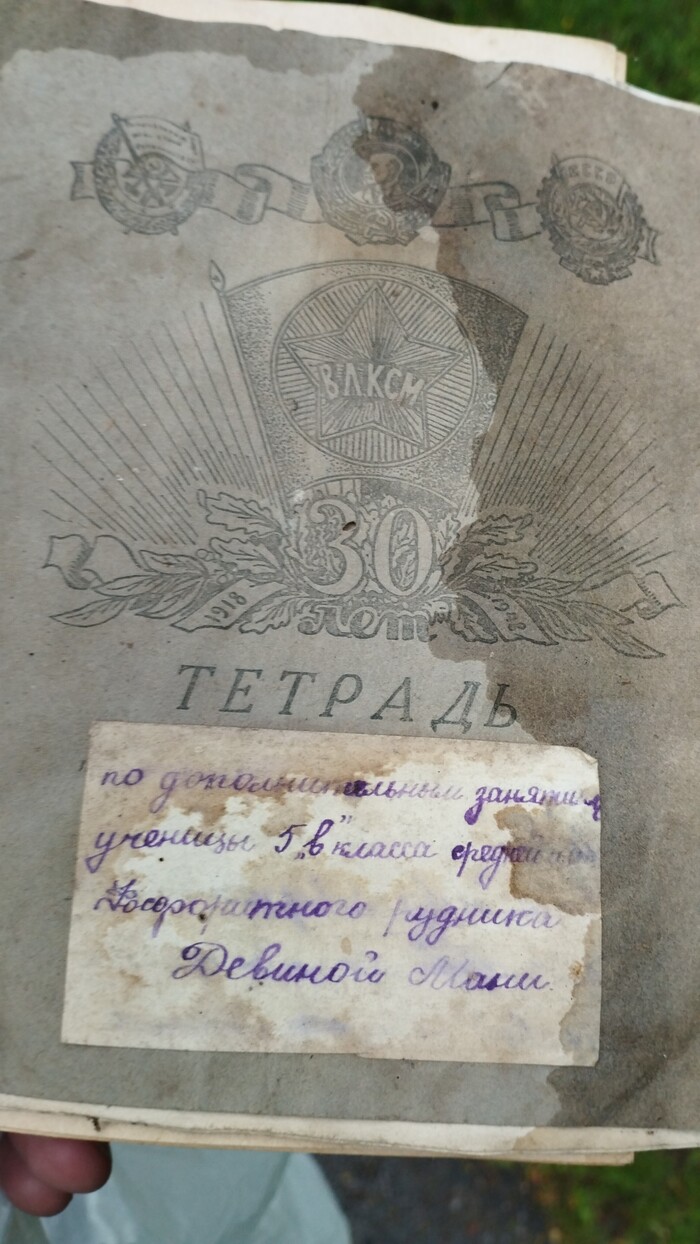 ВЛКСМ
30
лет
1918
1948
ТЕТРАДЬ
по дополнительным занятиям
ученицы 5 „в" класса средней
Фосфоритного рудника
Девиной Мани